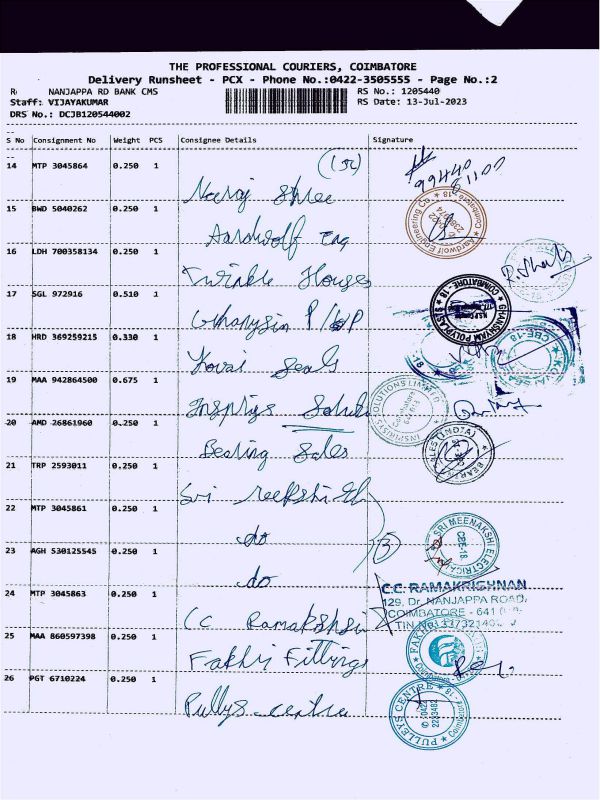 THE PROFESSIONAL COURIERS, COIMBATORE
Delivery Runsheet - PCX - Phone No.:0422-3505555 - Page No.:2
NANJAPPA RD BANK CMS
RS No.: 1205440
Staff: VIJAYAKUMAR
RS Date: 13-Jul-2023
DRS No.: DCJB120544002
S No Consignment No Weight PCS Consignee Details Signature
14 MTP 3045864 0.250 1 Neeraj Shree
99440 81100
15 BWD 5040262 0.250 1 Aardwolf Eng
Aardwolf Engineering Co
16 LDH 700358134 0.250 1 Twinkle House
17 SGL 972916 0.510 1
GHANSHYAM POLYPLAST
COIMBATORE - 18
18 HRD 369259215 0.330 1 Kovai Seals
CBE-18
19 MAA 942864500 0.675 1 Inspirys Soluti
INSPIRISYS SOLUTIONS LIMITED
20 AMD 26861960 0.250 1 Bearing Sales
SALES (INDIA)
21 TRP 2593011 0.250 1 Sri
22 MTP 3045861 0.250 1 do
SRI MEENAKSHI ELECTRICAL
CBE-18
23 AGH 530125545 0.250 1 do
24 MTP 3045863 0.250 1 CC
C.C. RAMAKRISHNAN
129, Dr. NANJAPPA ROAD,
COIMBATORE - 641
TIN No
25 MAA 860597398 0.250 1 Fakhri Fittings
26 PGT 6710224 0.250 1 Pullys centre
PULLEYS CENTRE
0422